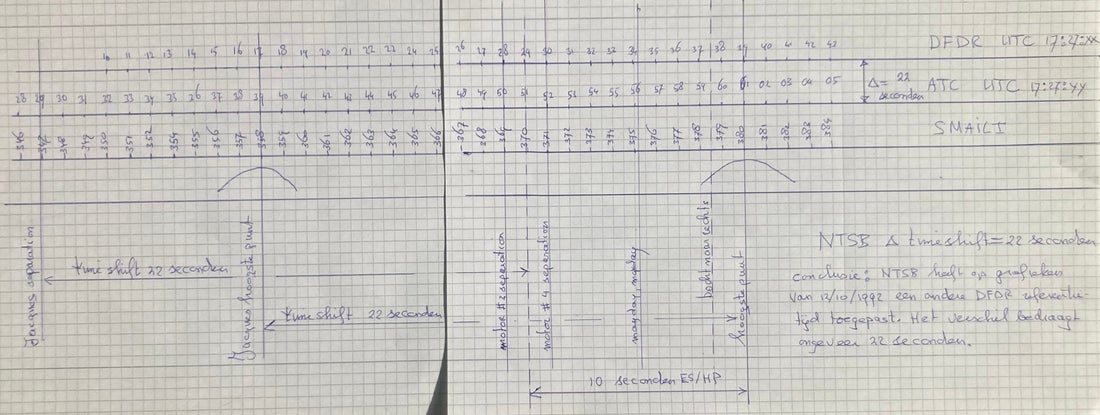 10 11 12 13 14 15 16 17 18 19 20 21 22 23 24 25 26 27 28 29 30 31 32 33 34 35 36 37 38 39 40 41 42 43 DFDR UTC 17:27:xx
28 29 30 31 32 33 34 35 36 37 38 39 40 41 42 43 44 45 46 47 48 49 50 51 52 53 54 55 56 57 58 59 60 01 02 03 04 05 Δ= 22 seconden ATC UTC 17:27:yy
346 347 348 349 350 351 352 354 355 356 357 358 359 360 361 362 363 364 365 366 367 368 369 370 371 372 373 374 375 376 377 378 379 380 381 382 383 384 SMAILI
Jacques separation
time shift 22 seconden
Jacques hoogste punt
time shift 22 seconden
motor #3 seperation
motor #4 seperation
mayday, mayday
bocht naar rechts
hoogste punt
10 seconden ES/HP
NTSB Δ timeshift=22 seconden
conclusie: NTSB heeft op grafieken
van 13/10/1992 een andere DFDR referentie-
tijd toegepast. Het verschil bedraagt
ongeveer 22 seconden.